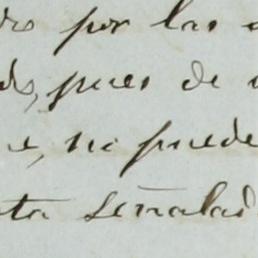 por las
pues de
, ni puede
ta señalad